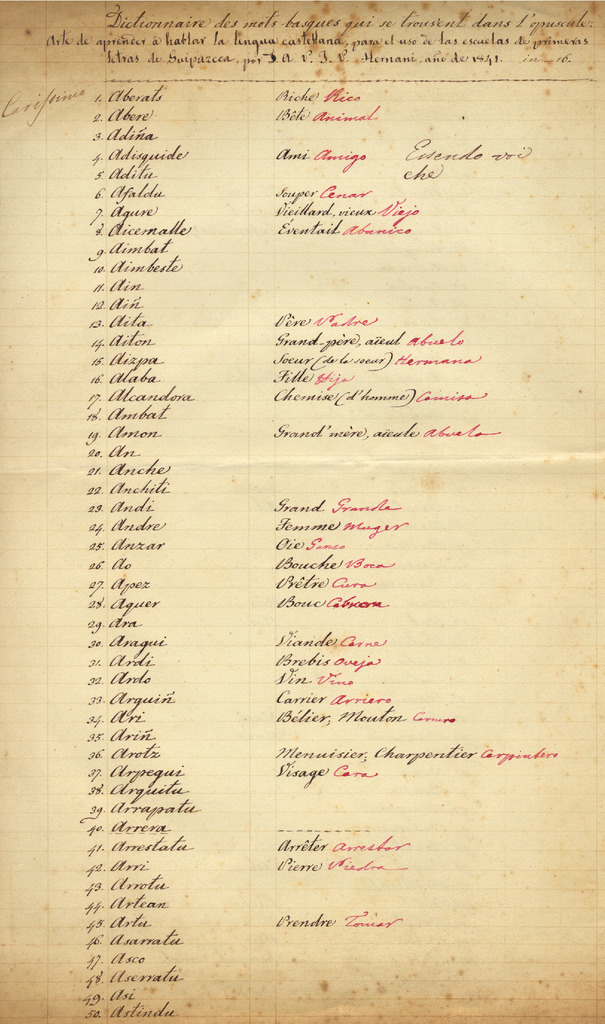 Dictionnaire des mots basques qui se trouvent dans l'opuscule:
Arte de aprender á hablar la lengua castellana, para el uso de las escuelas de primeras
letras de Guipuzcoa, por D. A. P. I. P. Hernani, año de 1841. in-16.
Carissimo
1. Aberats Riche Rico
2. Abere Bête Animal
3. Adiña
4. Adisquide Ami Amigo Essendo voi
5. Aditu che
6. Afaldu Souper Cenar
7. Agure Vieillard, vieux Viejo
8. Aicemalle Éventail Abanico
9. Aimbat
10. Aimbeste
11. Ain
12. Aiñ
13. Aita Père Padre
14. Aiton Grand-père, aïeul Abuelo
15. Aizpa Soeur (de la soeur) Hermana
16. Alaba Fille Hija
17. Alcandora Chemise (d'homme) Camisa
18. Ambat
19. Amon Grand'mère, aïeule Abuela
20. An
21. Anche
22. Anchiti
23. Andi Grand Grande
24. Andre Femme Muger
25. Anzar Oie Ganso
26. Ao Bouche Boca
27. Apez Prêtre Cura
28. Aquer Bouc Cabron
29. Ara
30. Aragui Viande Carne
31. Ardi Brebis Oveja
32. Ardo Vin Vino
33. Arguiñ Carrier Arriero
34. Ari Bélier, Mouton Carnero
35. Ariñ
36. Arotz Menuisier, Charpentier Carpintero
37. Arpegui Visage Cara
38. Arguitu
39. Arrapatu
40. Arrera
41. Arrestatu Arrêter Arrestar
42. Arri Pierre Piedra
43. Arrotu
44. Artean
45. Artu Prendre Tomar
46. Asarratu
47. Asco
48. Aserratu
49. Asi
50. Astindu